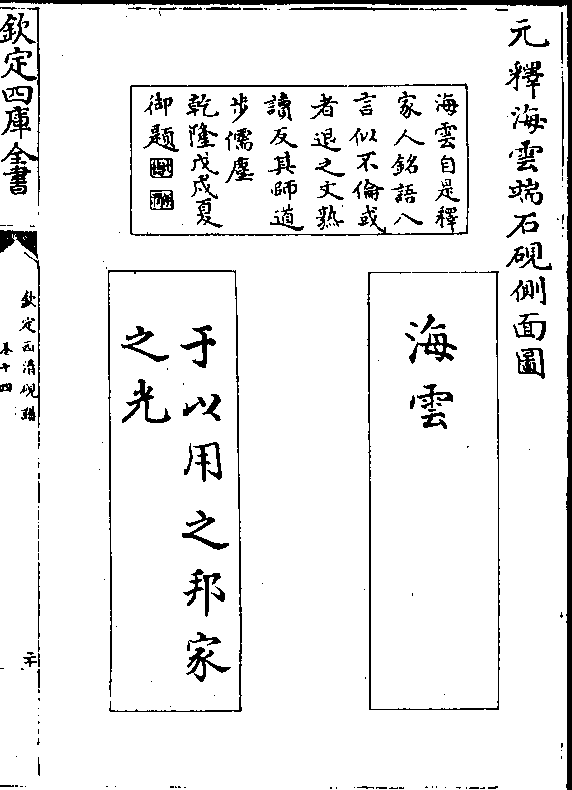 元釋海雲端石硯側面圖
海雲自是釋
家人銘語八
言似不倫或
者退之文熟
讀反其師道
步儒塵
乾隆戊戌夏
御題
海雲
于以用之邦家
之光
欽定四庫全書
欽定西清硯譜
卷十四
二十